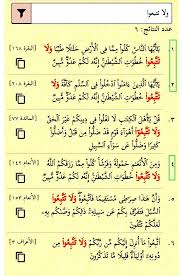 ولا تتبعوا
عدد النتائج: ٦
١. [البقرة ١٦٨]
يَٰٓأَيُّهَا ٱلنَّاسُ كُلُواْ مِمَّا فِي ٱلۡأَرۡضِ حَلَٰلٗا طَيِّبٗا وَلَا
تَتَّبِعُواْ خُطُوَٰتِ ٱلشَّيۡطَٰنِۚ إِنَّهُۥ لَكُمۡ عَدُوّٞ مُّبِينٌ
٢. [البقرة ٢٠٨]
يَٰٓأَيُّهَا ٱلَّذِينَ ءَامَنُواْ ٱدۡخُلُواْ فِي ٱلسِّلۡمِ كَآفَّةٗ وَلَا
تَتَّبِعُواْ خُطُوَٰتِ ٱلشَّيۡطَٰنِۚ إِنَّهُۥ لَكُمۡ عَدُوّٞ مُّبِينٞ
٣. [المائدة ٧٧]
قُلۡ يَٰٓأَهۡلَ ٱلۡكِتَٰبِ لَا تَغۡلُواْ فِي دِينِكُمۡ غَيۡرَ ٱلۡحَقِّ
وَلَا تَتَّبِعُوٓاْ أَهۡوَآءَ قَوۡمٖ قَدۡ ضَلُّواْ مِن قَبۡلُ وَأَضَلُّواْ
كَثِيرٗا وَضَلُّواْ عَن سَوَآءِ ٱلسَّبِيلِ
٤. [الأنعام ١٤٢]
وَمِنَ ٱلۡأَنۡعَٰمِ حَمُولَةٗ وَفَرۡشٗاۚ كُلُواْ مِمَّا رَزَقَكُمُ ٱللَّهُ
وَلَا تَتَّبِعُواْ خُطُوَٰتِ ٱلشَّيۡطَٰنِۚ إِنَّهُۥ لَكُمۡ عَدُوّٞ مُّبِينٞ
٥. [الأنعام ١٥٣]
وَأَنَّ هَٰذَا صِرَٰطِي مُسۡتَقِيمٗا فَٱتَّبِعُوهُۖ وَلَا تَتَّبِعُواْ
ٱلسُّبُلَ فَتَفَرَّقَ بِكُمۡ عَن سَبِيلِهِۦۚ ذَٰلِكُمۡ وَصَّىٰكُم بِهِۦ
لَعَلَّكُمۡ تَتَّقُونَ
٦. [الأعراف ٣]
ٱتَّبِعُواْ مَآ أُنزِلَ إِلَيۡكُم مِّن رَّبِّكُمۡ وَلَا تَتَّبِعُواْ مِن
دُونِهِۦٓ أَوۡلِيَآءَۗ قَلِيلٗا مَّا تَذَكَّرُونَ